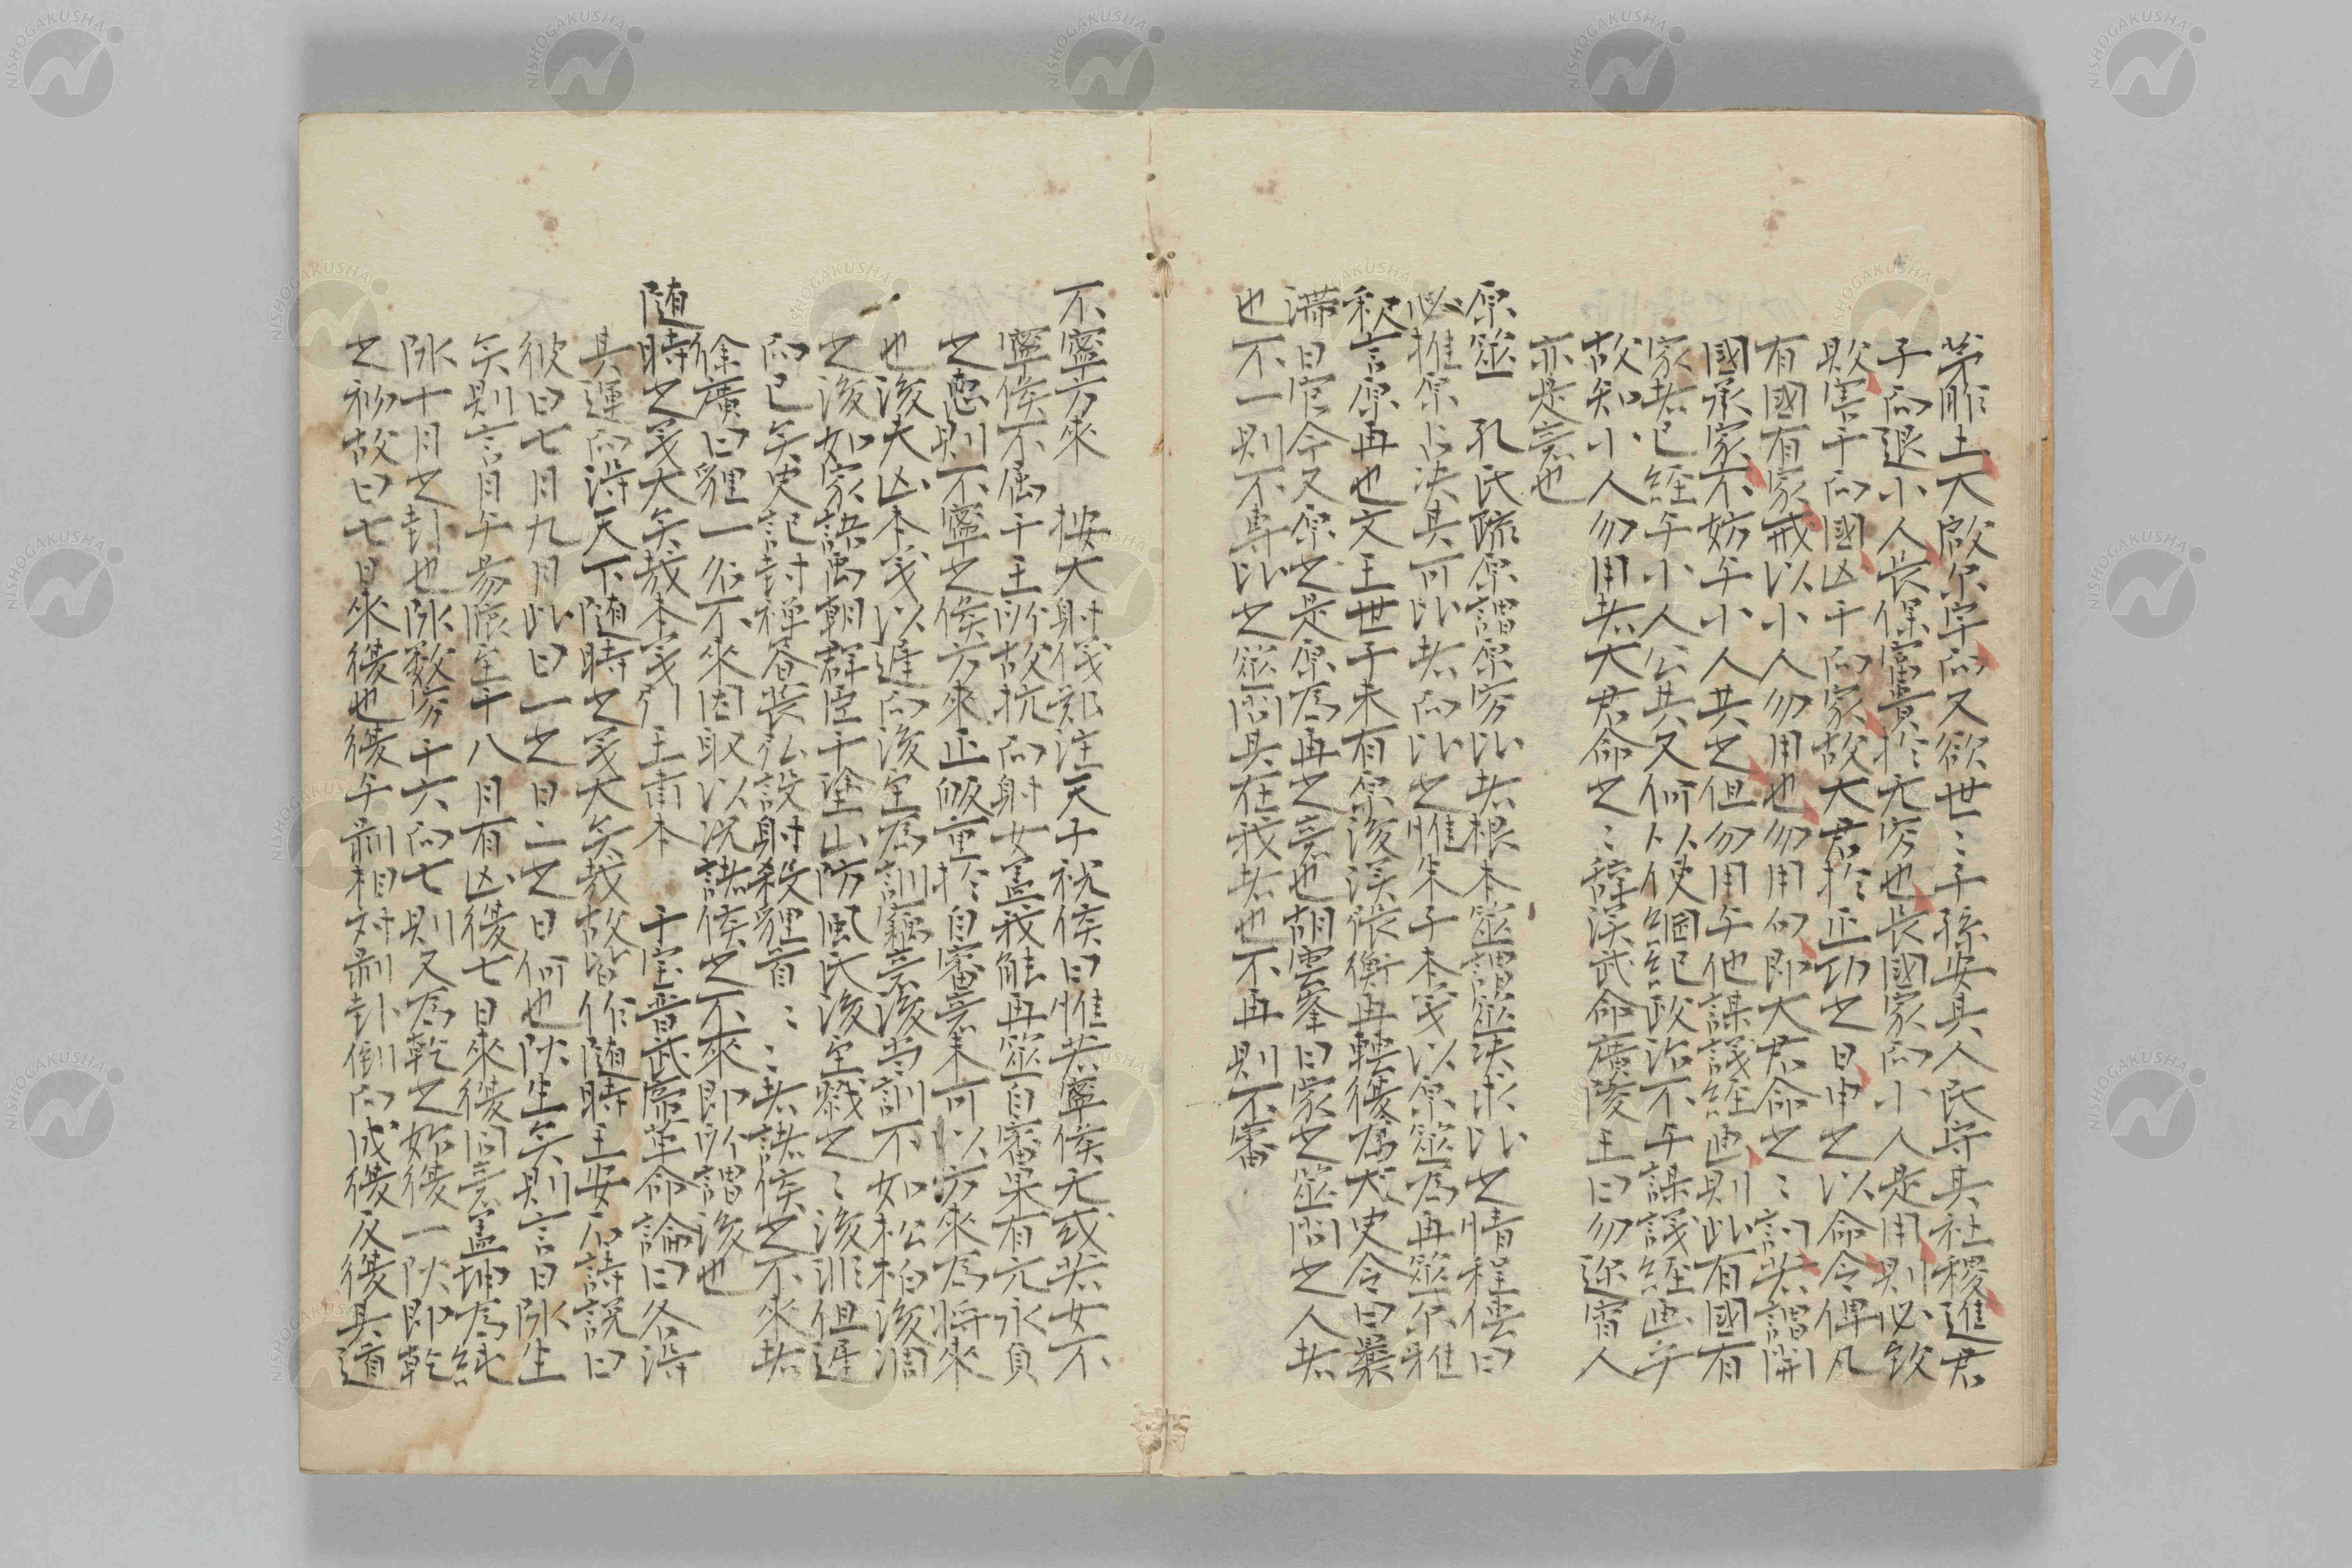 茅胙土大啟尓宇而又欲世〻子孫安其人民守其社稷進君
子而退小人長保富貴於无穷也長國家而小人是用則必鈫
敗害于而國凶于而家故大君於正功之日申之以命令俾凡
有國有家戒以小人勿用也勿用句即大君命之〻詞若謂開
國承家不妨乎小人共之但勿用乎他謀議經画則此有國有
家者已經乎小人公共又何以使綱紀政治不乎謀議經画乎
故知小人勿用者大君命之〻辞漢武命廣陵王曰勿迩宵人
亦是意也
原筮　孔氏疏原謂原穷比者根本筮謂筮決求比之情程傳曰
必推原占决其可比者而比之惟朱子本義以原筮為再筮尓雅
釈言原再也文王世子末有原後漢張衡再轉復為太史令曰曩
滞日官今又原之是原為再之意也胡雲峯曰蒙之筮問之人者
也不一則不專比之筮問其在我者也不再則不審
不寧方來　按大射儀鄭注天子祝侯曰惟若寧侯无或若女不
寧侯不属于王所故抗而射女盖我能再筮自審果有元永貞
之悳則不寧之侯方來正皈重於自審意未可以方來為將來
也後夫凶本義以遲而後至為訓竊意後当訓不如松柏後凋
之後如家語禹朝群臣于塗山防風氏後至戮之〻後非但遲
而已矣史記封禅苍萇弘設射殺貍首〻〻者諸侯之不來者
徐廣曰貍一名不來因取以况諸侯之不來即所謂後也
随時之義大矣哉本義引王甫本　于宝晋武帝革命論曰各浔
其運而浔天下随時之義大矣哉故皆作随時王安石詩説曰
彼曰七月九月此曰一之日二之日何也阦生矣則言日阥生
矣則言月与易臨至于八月有凶復七日來復同意盖坤為純
阥十月之卦也阥数穷于六而七則又為乾之始復一阦即乾
之初故曰七日來復也復与剥相対剥卦倒而成復反復其道